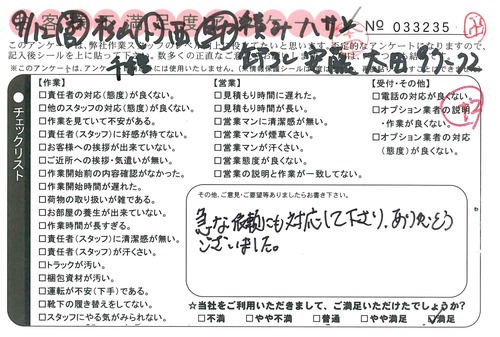 № 033235
このアンケートは、弊社作業スタッフの
記入後シールを上に貼って下
※このアンケートは、
チェックリスト
【作業】
□責任者の対応(態度)が良くない。
□他のスタッフの対応(態度)が良くない。
□作業を見ていて不安がある。
□責任者(スタッフ)に好感が持てない。
□お客様への挨拶が出来ていない。
□ご近所への挨拶・気遣いが無い。
□作業開始前の内容確認がなかった。
□作業開始時間が遅れた。
□荷物の取り扱いが雑である。
□お部屋の養生が出来ていない。
□作業時間が長すぎる。
□責任者(スタッフ)に清潔感が無い。
□責任者(スタッフ)が汗くさい。
□トラックが汚い。
□梱包資材が汚い。
□運転が不安(下手)である。
□靴下の履き替えをしてない。
□スタッフにやる気がみられない。
【営業】
□見積もり時間に遅れた。
□見積もり時間が長い。
□営業マンに清潔感が無い。
□営業マンが煙草くさい。
□営業マンが汗くさい。
□営業態度が良くない。
□営業の説明と作業が一致してない。
【受付・その他】
□電話の対応が良くない。
□オプション業者の説明
・作業が良くない。
□オプション業者の対応
(態度)が良くない。
その他、ご意見・ご要望等ありましたらお書き下さい。
急な依頼にも対応して下さり、ありがとう
ございました。
☆当社をご利用いただきまして、ご満足いただけたでしょうか?
□不満 □やや不満 □普通 □やや満足 ☑満足